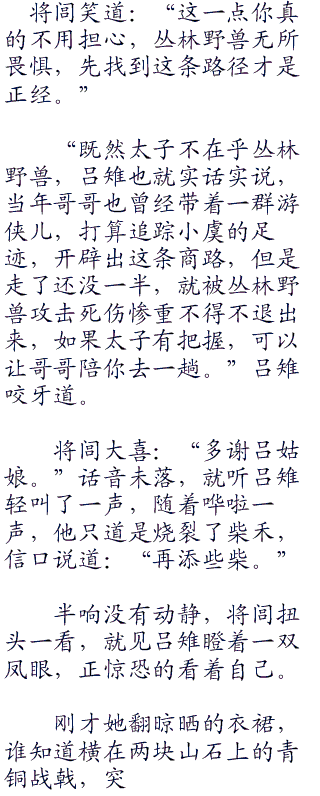 将闾笑道：“这一点你真
的不用担心，丛林野兽无所
畏惧，先找到这条路径才是
正经。”
“既然太子不在乎丛林
野兽，吕雉也就实话实说，
当年哥哥也曾经带着一群游
侠儿，打算追踪小虞的足
迹，开辟出这条商路，但是
走了还没一半，就被丛林野
兽攻击死伤惨重不得不退出
来，如果太子有把握，可以
让哥哥陪你去一趟。”吕雉
咬牙道。
将闾大喜：“多谢吕姑
娘。”话音未落，就听吕雉
轻叫了一声，随着哗啦一
声，他只道是烧裂了柴禾，
信口说道：“再添些柴。”
半响没有动静，将闾扭
头一看，就见吕雉瞪着一双
凤眼，正惊恐的看着自己。
刚才她翻晾晒的衣裙，
谁知道横在两块山石上的青
铜战戟，突